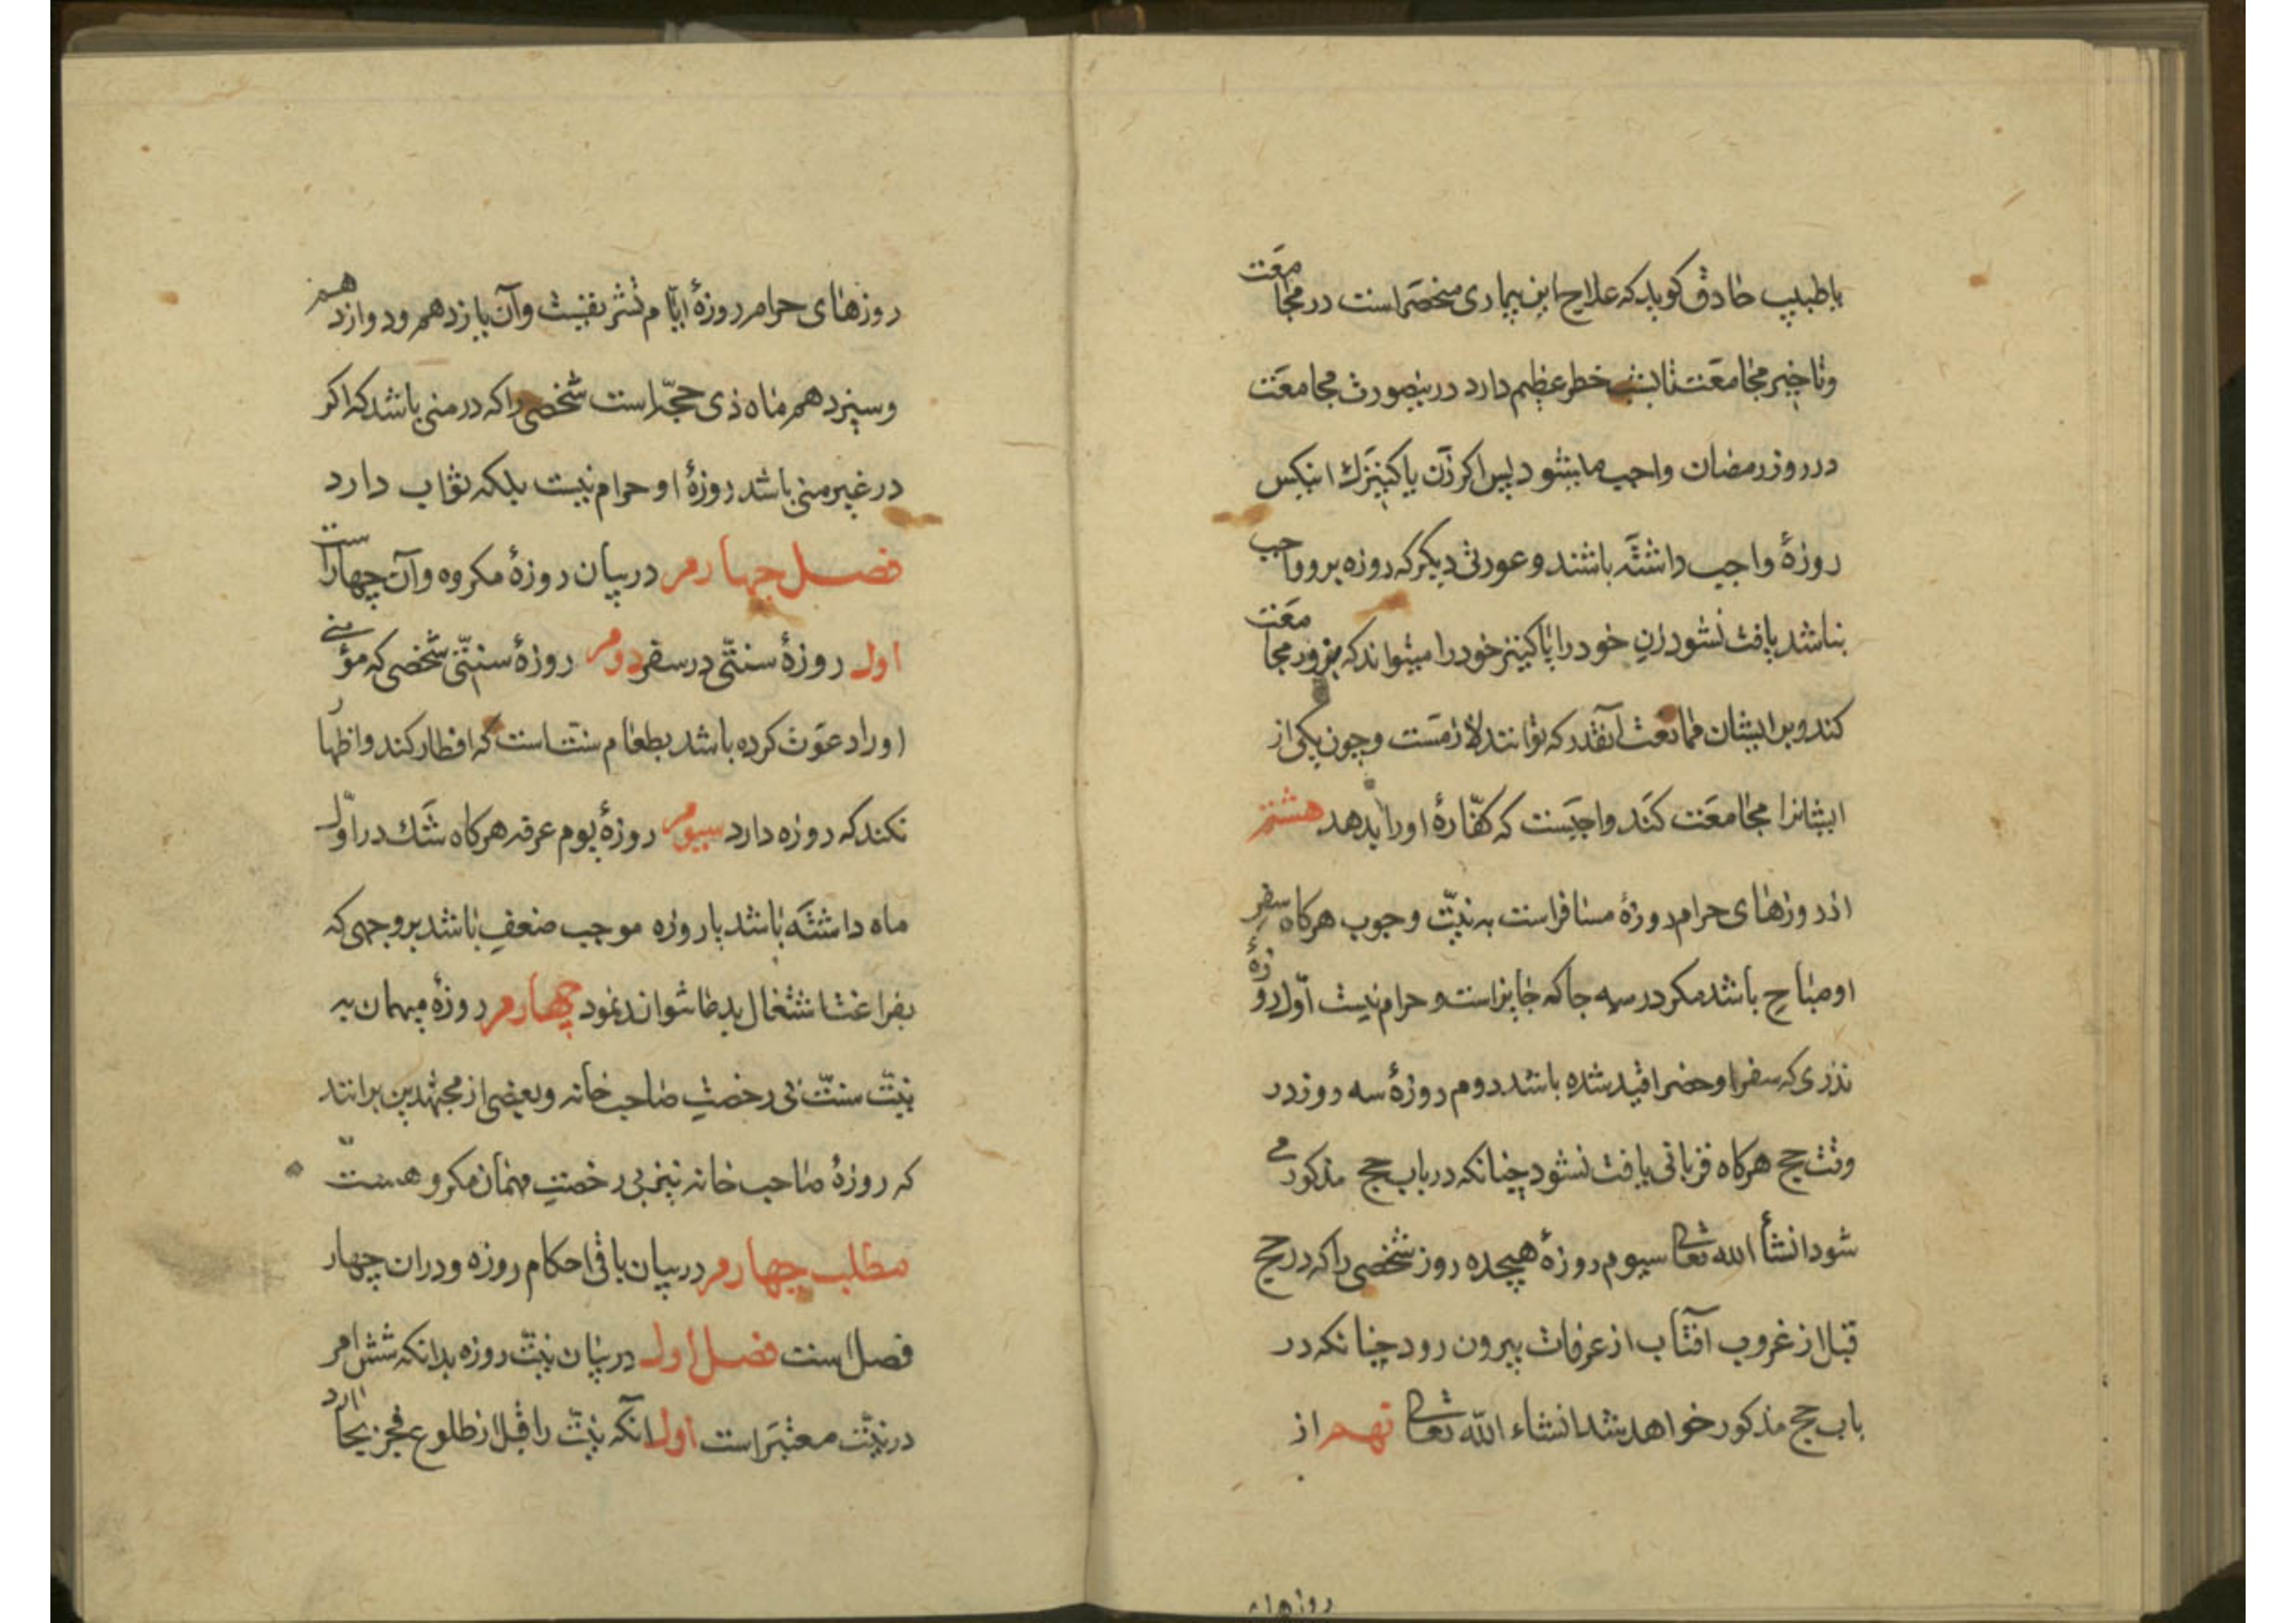 یا طبیب حاذق کوید که علاج این بیماری منحصر است در مجامعت
و تاخیر مجامعت تا بشب خطر عظیم دارد درینصورت مجامعت
در روز رمضان واجب میشود پس اکر زن یا کنیزک اینکس
روزهٔ واجب داشته باشند و عورتی دیکر که روزه برو واجب
نباشد یافت نشود زن خود را یا کنیز خود را میتواند که بزور مجامعت
کند و بر ایشان ممانعت آنقدر که توانند لازمست و چون یکی از
ایشانرا مجامعت کند واجبست که کفّارهٔ او را بدهد هشتم
از روزهای حرام روزهٔ مسافر است به نیّت وجوب هرکاه سفر
او مباح باشد مکر در سه جا که جایز است و حرام نیست اوّل روزهٔ
نذری که سفرا و حضرا قید شده باشد دوم روزهٔ سه روز در
وقت حج هرکاه قربانی یافت نشود چنانکه در باب حج مذکور می
شود انشأ الله تعالی سیوم روزهٔ هیجده روز شخصی را که در حج
قبل از غروب آفتاب از عرفات بیرون رود چنانکه در
باب حج مذکور خواهد شد انشاء الله تعالی نهم از
روزهای
روزهای حرام روزهٔ ایّام تشریقست و آن یازدهم و دوازدهم
و سیزدهم ماه ذی حجّه است شخصی را که در منی باشد که اکر
در غیر منی باشد روزهٔ او حرام نیست بلکه ثواب دارد
فصل چهارم در بیان روزهٔ مکروه و آن چهار است
اول روزهٔ سنتّی در سفر دوم روزهٔ سنتّی شخصی که مؤمنی
او را دعوت کرده باشد بطعام سنت است که افطار کند و اظهار
نکند که روزه دارد سیوم روزهٔ یوم عرفه هرکاه شک در اوّل
ماه داشته باشد یا روزه موجب ضعف باشد بر وجهی که
بفراغت اشتغال بدعا نتواند نمود چهارم روزهٔ میهمان به
نیّت سنتّ بی رخصت صاحب خانه و بعضی از مجتهدین برانند
که روزهٔ صاحب خانه نیز بی رخصت مهمان مکروهست
مطلب چهارم در بیان باقی احکام روزه و در ان چهار
فصل است فصل اول در بیان نیّت روزه بدانکه شش امر
در نیّت معتبر است اول انکه نیّت را قبل از طلوع فجر بجا ارد